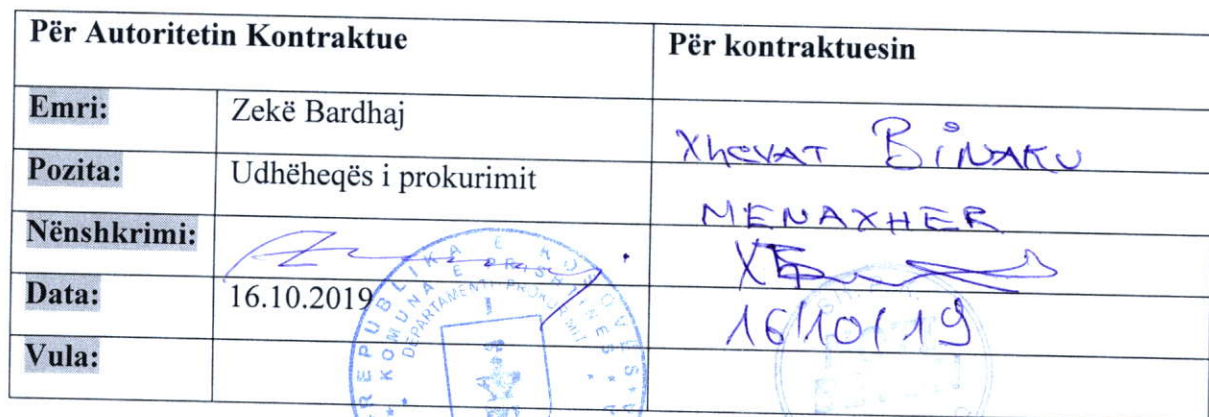 Për Autoritetin Kontraktue
Për kontraktuesin
Emri: Zekë Bardhaj Xhevat BiNAKU
Pozita: Udhëheqës i prokurimit MENAXHER
Nënshkrimi:
Data: 16.10.2019 16/10/19
Vula:
REPUBLIKA E KOSOVËS
KOMUNA E PRISHTINËS
DEPARTAMENTI PROKURIMIT